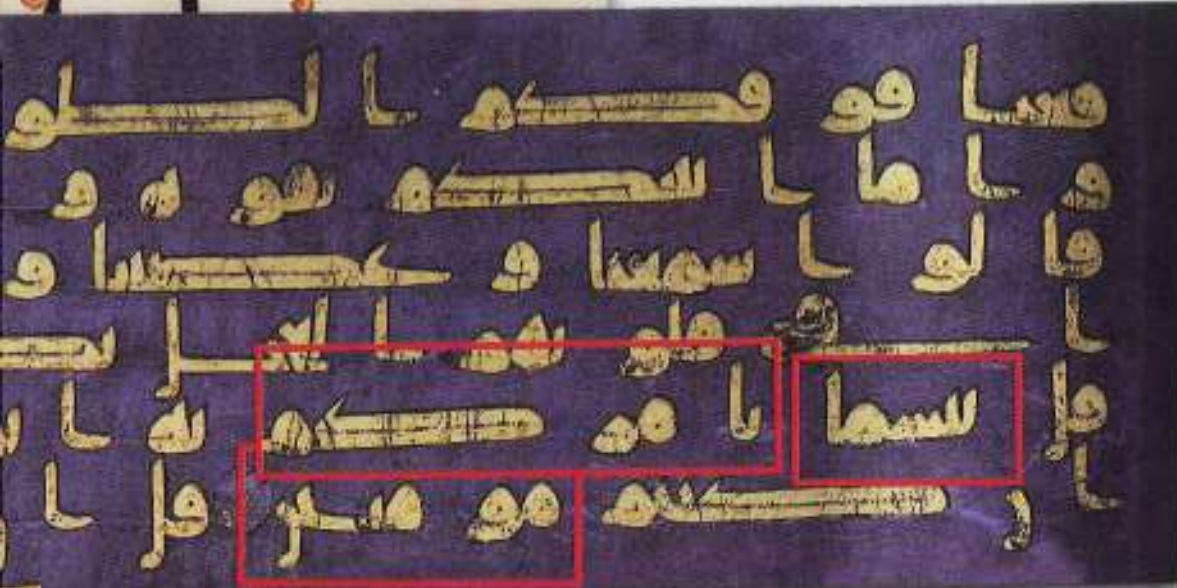 فعنا فو قكم ا لطو
و ا ما ا تينكم بقو ة و
قا لو ا سمعنا و عصينا و
ا في قلو بهم ا لعجل بكـ
قل بئسما يا مر كم به ا يـ
ا ن كنتم مو منين قل ا